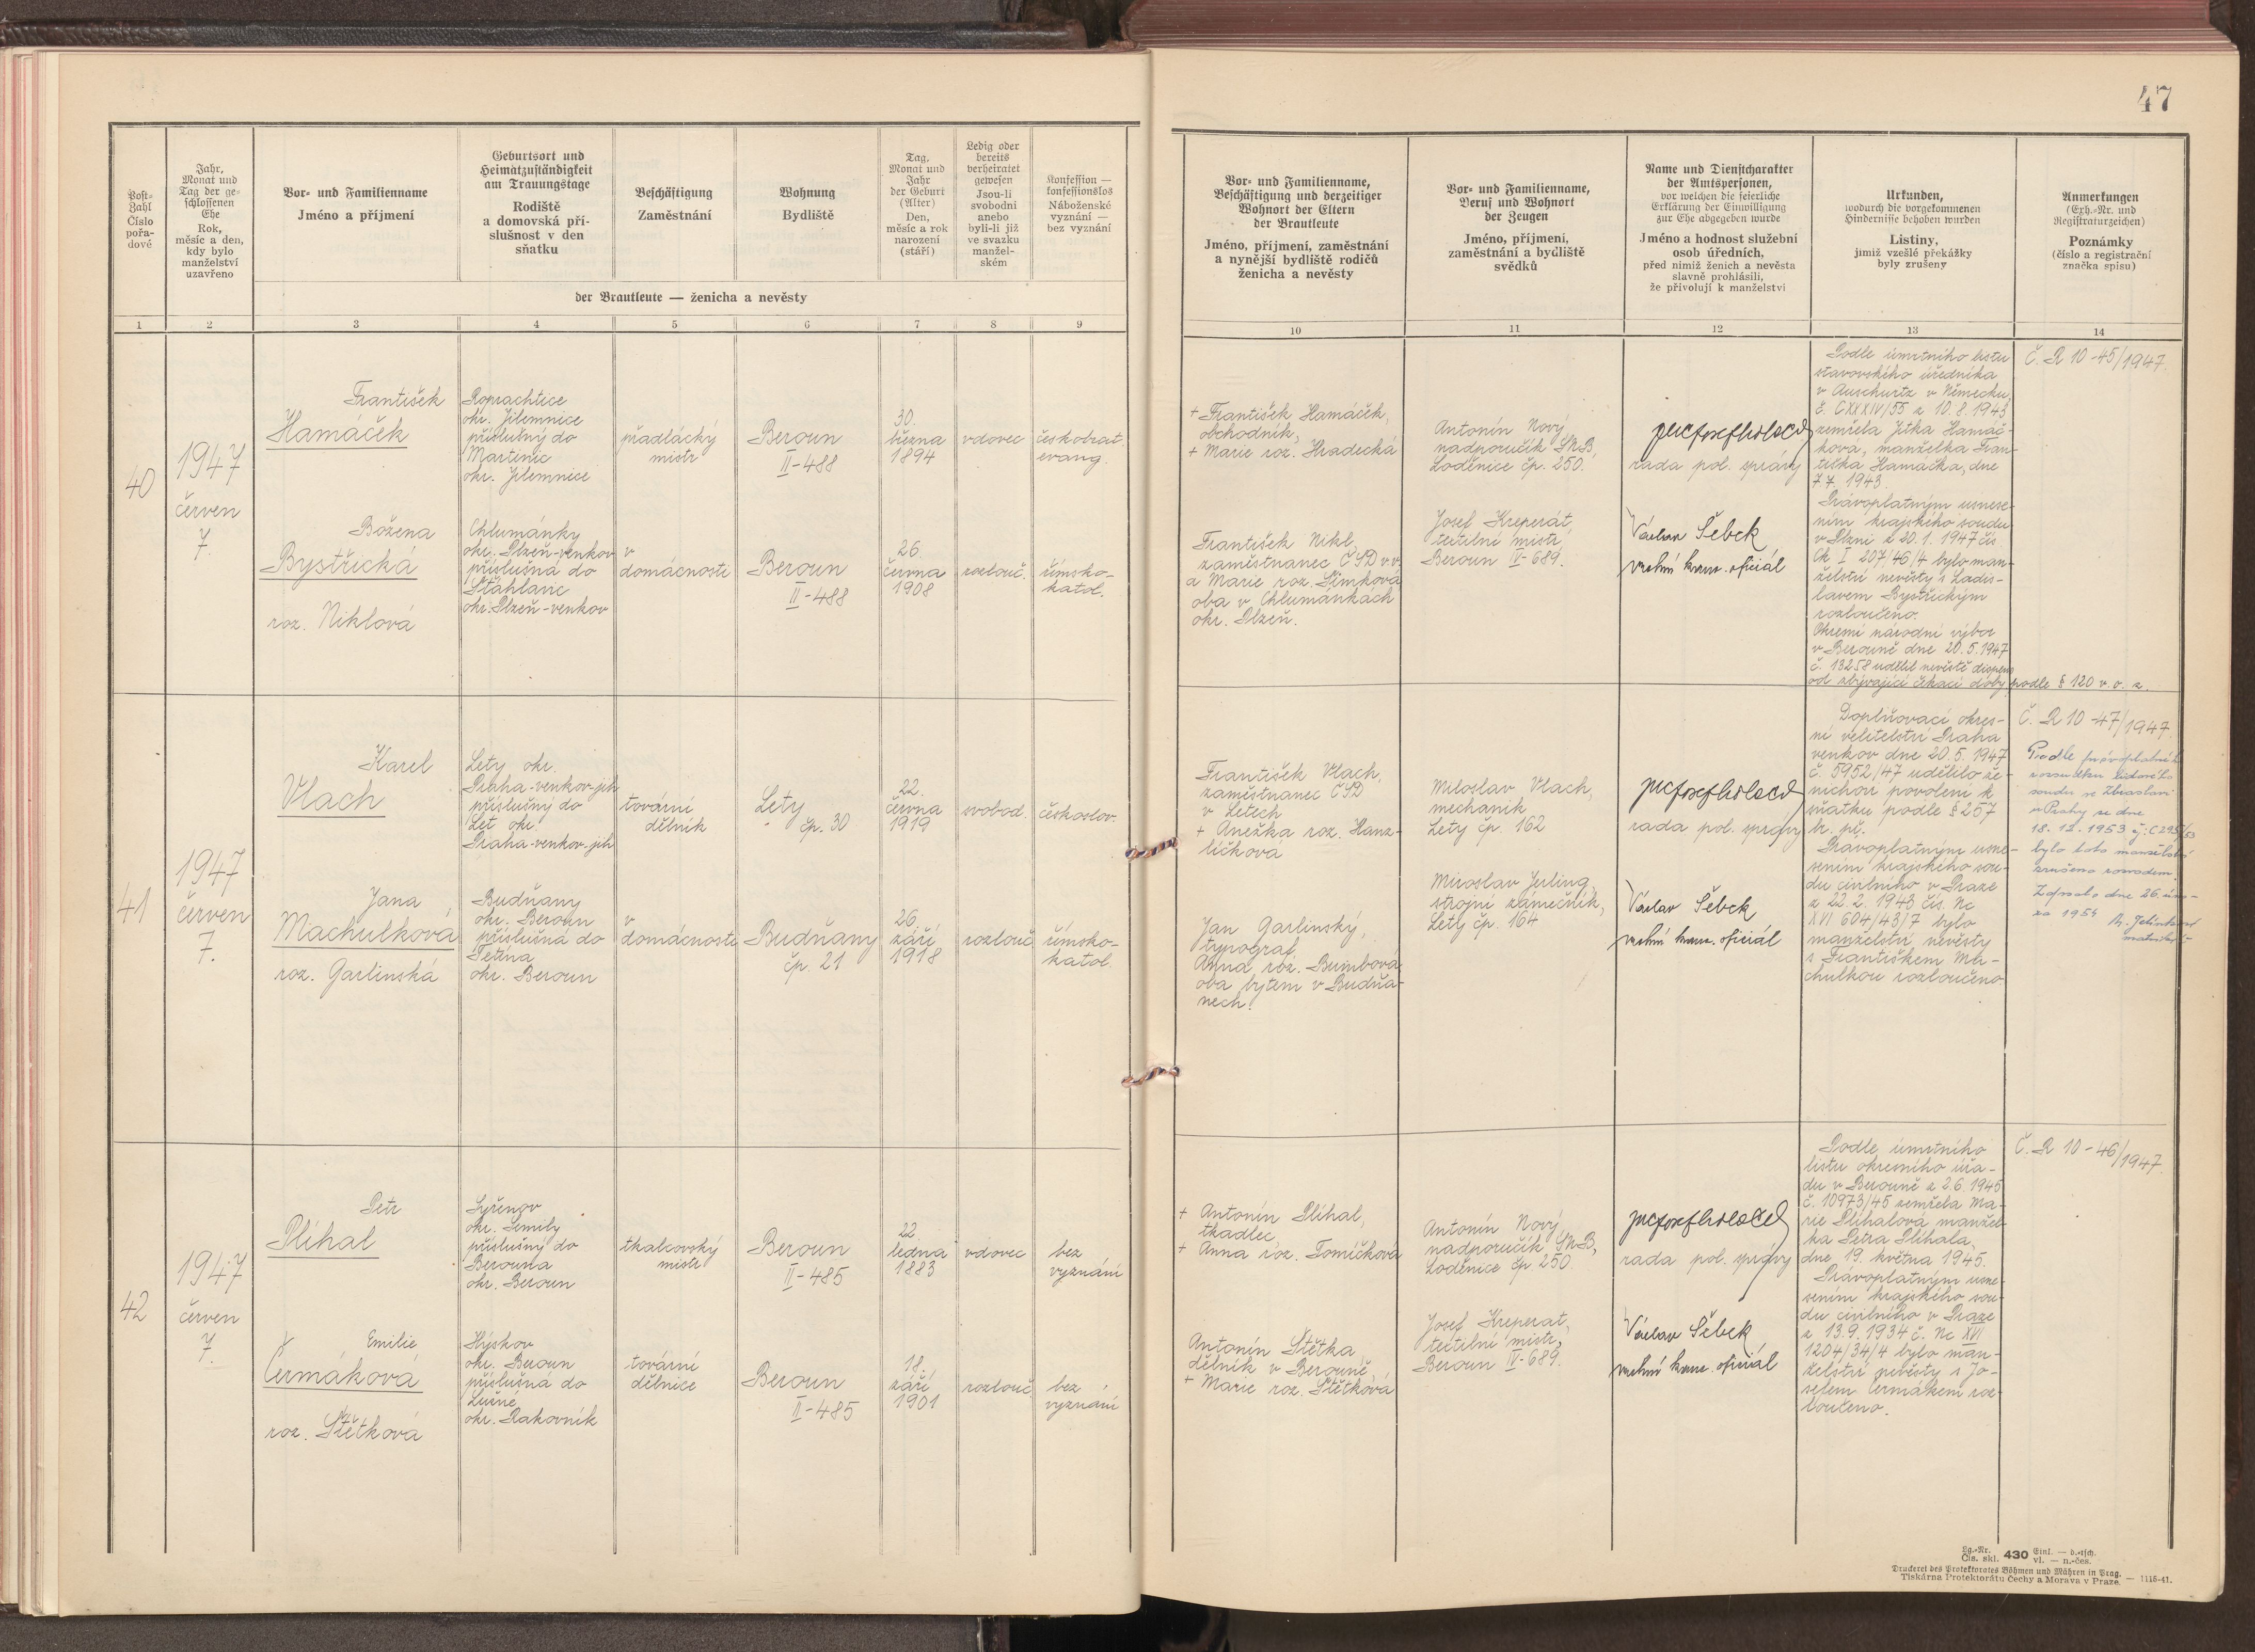 47
Post-
Zahl
Číslo
pořa-
dové
Jahr,
Monat und
Tag der ge-
schlossenen
Ehe
Rok,
měsíc a den,
kdy bylo
manželství
uzavřeno
Vor- und Familienname
Jméno a příjmení
Geburtsort und
Heimatzuständigkeit
am Trauungstage
Rodiště
a domovská pří-
slušnost v den
sňatku
Beschäftigung
Zaměstnání
Wohnung
Bydliště
Tag,
Monat und
Jahr
der Geburt
(Alter)
Den,
měsíc a rok
narození
(stáří)
Ledig oder
bereits
verheiratet
gewesen
Jsou-li
svobodni
anebo
byli-li již
ve svazku
manžel-
ském
Konfession —
konfessionslos
Náboženské
vyznání —
bez vyznání
der Brautleute — ženicha a nevěsty
Vor- und Familienname,
Beschäftigung und derzeitiger
Wohnort der Eltern
der Brautleute
Jméno, příjmení, zaměstnání
a nynější bydliště rodičů
ženicha a nevěsty
Vor- und Familienname,
Beruf und Wohnort
der Zeugen
Jméno, příjmení,
zaměstnání a bydliště
svědků
Name und Dienstcharakter
der Amtspersonen,
vor welchen die feierliche
Erklärung der Einwilligung
zur Ehe abgegeben wurde
Jméno a hodnost služební
osob úředních,
před nimiž ženich a nevěsta
slavně prohlásili,
že přivolují k manželství
Urkunden,
wodurch die vorgekommenen
Hindernisse behoben wurden
Listiny,
jimiž vzešlé překážky
byly zrušeny
Anmerkungen
(Exh.-Nr. und
Registraturzeichen)
Poznámky
(číslo a registrační
značka spisu)
1 2 3 4 5 6 7 8 9 10 11 12 13 14
40
1947
červen
7.
František
Hamáček
Roprachtice
okr. Jilemnice
příslušný do
Martinic
okr. Jilemnice
přadlácký
mistr
Beroun
II-488
30.
března
1894
vdovec
českobrat.
evang.
Božena
Bystřická
roz. Niklová
Chlumánky
okr. Plzeň-venkov
příslušná do
Štáhlavic
okr. Plzeň-venkov
v
domácnosti
Beroun
II-488
26.
června
1908
rozlouč.
římsko-
katol.
+ František Hamáček,
obchodník,
+ Marie roz. Hradecká
František Nikl,
zaměstnanec ČSD v.v.
a Marie roz. Šimková
oba v Chlumánkách
okr. Plzeň.
Antonín Nový
nadporučík SNB,
Loděnice čp. 250.
Josef Kreperát,
textilní mistr,
Beroun IV-689.
rada pol. správy
Václav Šebek
vrchní kanc. oficiál
Podle úmrtního listu
stavovského úředníka
v Auschwitz v Německu,
č. CXXXIV/55 z 10.8.1943
zemřela Jitka Hamáč-
ková, manželka Fran-
tiška Hamáčka, dne
7.7. 1943.
Právoplatným usnese-
ním krajského soudu
v Plzni z 20.1. 1947 čís.
Ck I 207/46/4 bylo man-
želství nevěsty s Ladis-
lavem Bystřickým
rozloučeno.
Okresní národní výbor
v Berouně dne 20.5.1947
č. 13258 udělil nevěstě dispens
od zbývající čekací doby podle § 120 v. o. z.
Č. R 10-45/1947.
41
1947
červen
7.
Karel
Vlach
Lety okr.
Praha-venkov-jih
příslušný do
Let okr.
Praha-venkov-jih
tovární
dělník
Lety
čp. 30
22.
června
1919
svobod.
českoslov.
Jana
Machulková
roz. Garlinská
Budňany
okr. Beroun
příslušná do
Tetína
okr. Beroun
v
domácnosti
Budňany
čp. 21
26.
září
1918
rozlouč.
římsko-
katol.
František Vlach,
zaměstnanec ČSD
v Letech
+ Anežka roz. Hanz-
líčková
Jan Garlinský,
typograf,
Anna roz. Bumbová
oba bytem v Budňa-
nech.
Miloslav Vlach,
mechanik
Lety čp. 162
Miroslav Jerling,
strojní zámečník,
Lety čp. 164
rada pol. správy
Václav Šebek
vrchní kanc. oficiál
Doplňovací okres-
ní velitelství Praha
venkov dne 20.5. 1947
č. 5952/47 udělilo že-
nichovi povolení k
sňatku podle § 257
br. př.
Právoplatným usne-
sením krajského sou-
du civilního v Praze
z 22.2. 1943 čís. Nc
XVI 604/43/7 bylo
manželství nevěsty
s Františkem Ma-
chulkou rozloučeno.
Č. R 10-47/1947.
Podle právoplatného
rozsudku lidového
soudu ve Zbraslavi
u Prahy ze dne
18. 12. 1953 č.j. C 295/53
bylo toto manželství
zrušeno rozvodem.
Zapsáno dne 26. úno-
ra 1954
42
1947
červen
7.
Petr
Plíhal
Syřenov
okr. Semily
příslušný do
Berouna
okr. Beroun
tkalcovský
mistr
Beroun
II-485
22.
ledna
1883
vdovec
bez
vyznání
Emilie
Čermáková
roz. Štětková
Hýskov
okr. Beroun
příslušná do
Lužné
okr. Rakovník
tovární
dělnice
Beroun
II-485
18.
září
1901
rozlouč.
bez
vyznání
+ Antonín Plíhal,
tkadlec
+ Anna roz. Tomíčková
Antonín Štětka
dělník v Berouně,
+ Marie roz. Štětková
Antonín Nový
nadporučík SNB,
Loděnice čp 250.
Josef Kreperat,
textilní mistr,
Beroun IV-689.
rada pol. správy
Václav Šebek
vrchní kanc. oficiál
Podle úmrtního
listu okresního úřa-
du v Berouně z 2.6. 1945
č. 10973/45 zemřela Ma-
rie Plíhalová, manžel-
ka Petra Plíhala,
dne 19. května 1945.
Právoplatným usne-
sením krajského sou-
du civilního v Praze
z 13.9. 1934 č. Nc XVI
1204/34/4 bylo man-
želství nevěsty s Jo-
sefem Čermákem roz-
loučeno.
Č. R 10-46/1947.
Lg.-Nr. 430 Einl. — d.-tsch.
Čís. skl. vl. — n.-čes.
Druckerei des Protektorates Böhmen und Mähren in Prag.
Tiskárna Protektorátu Čechy a Morava v Praze. — 1115-41.